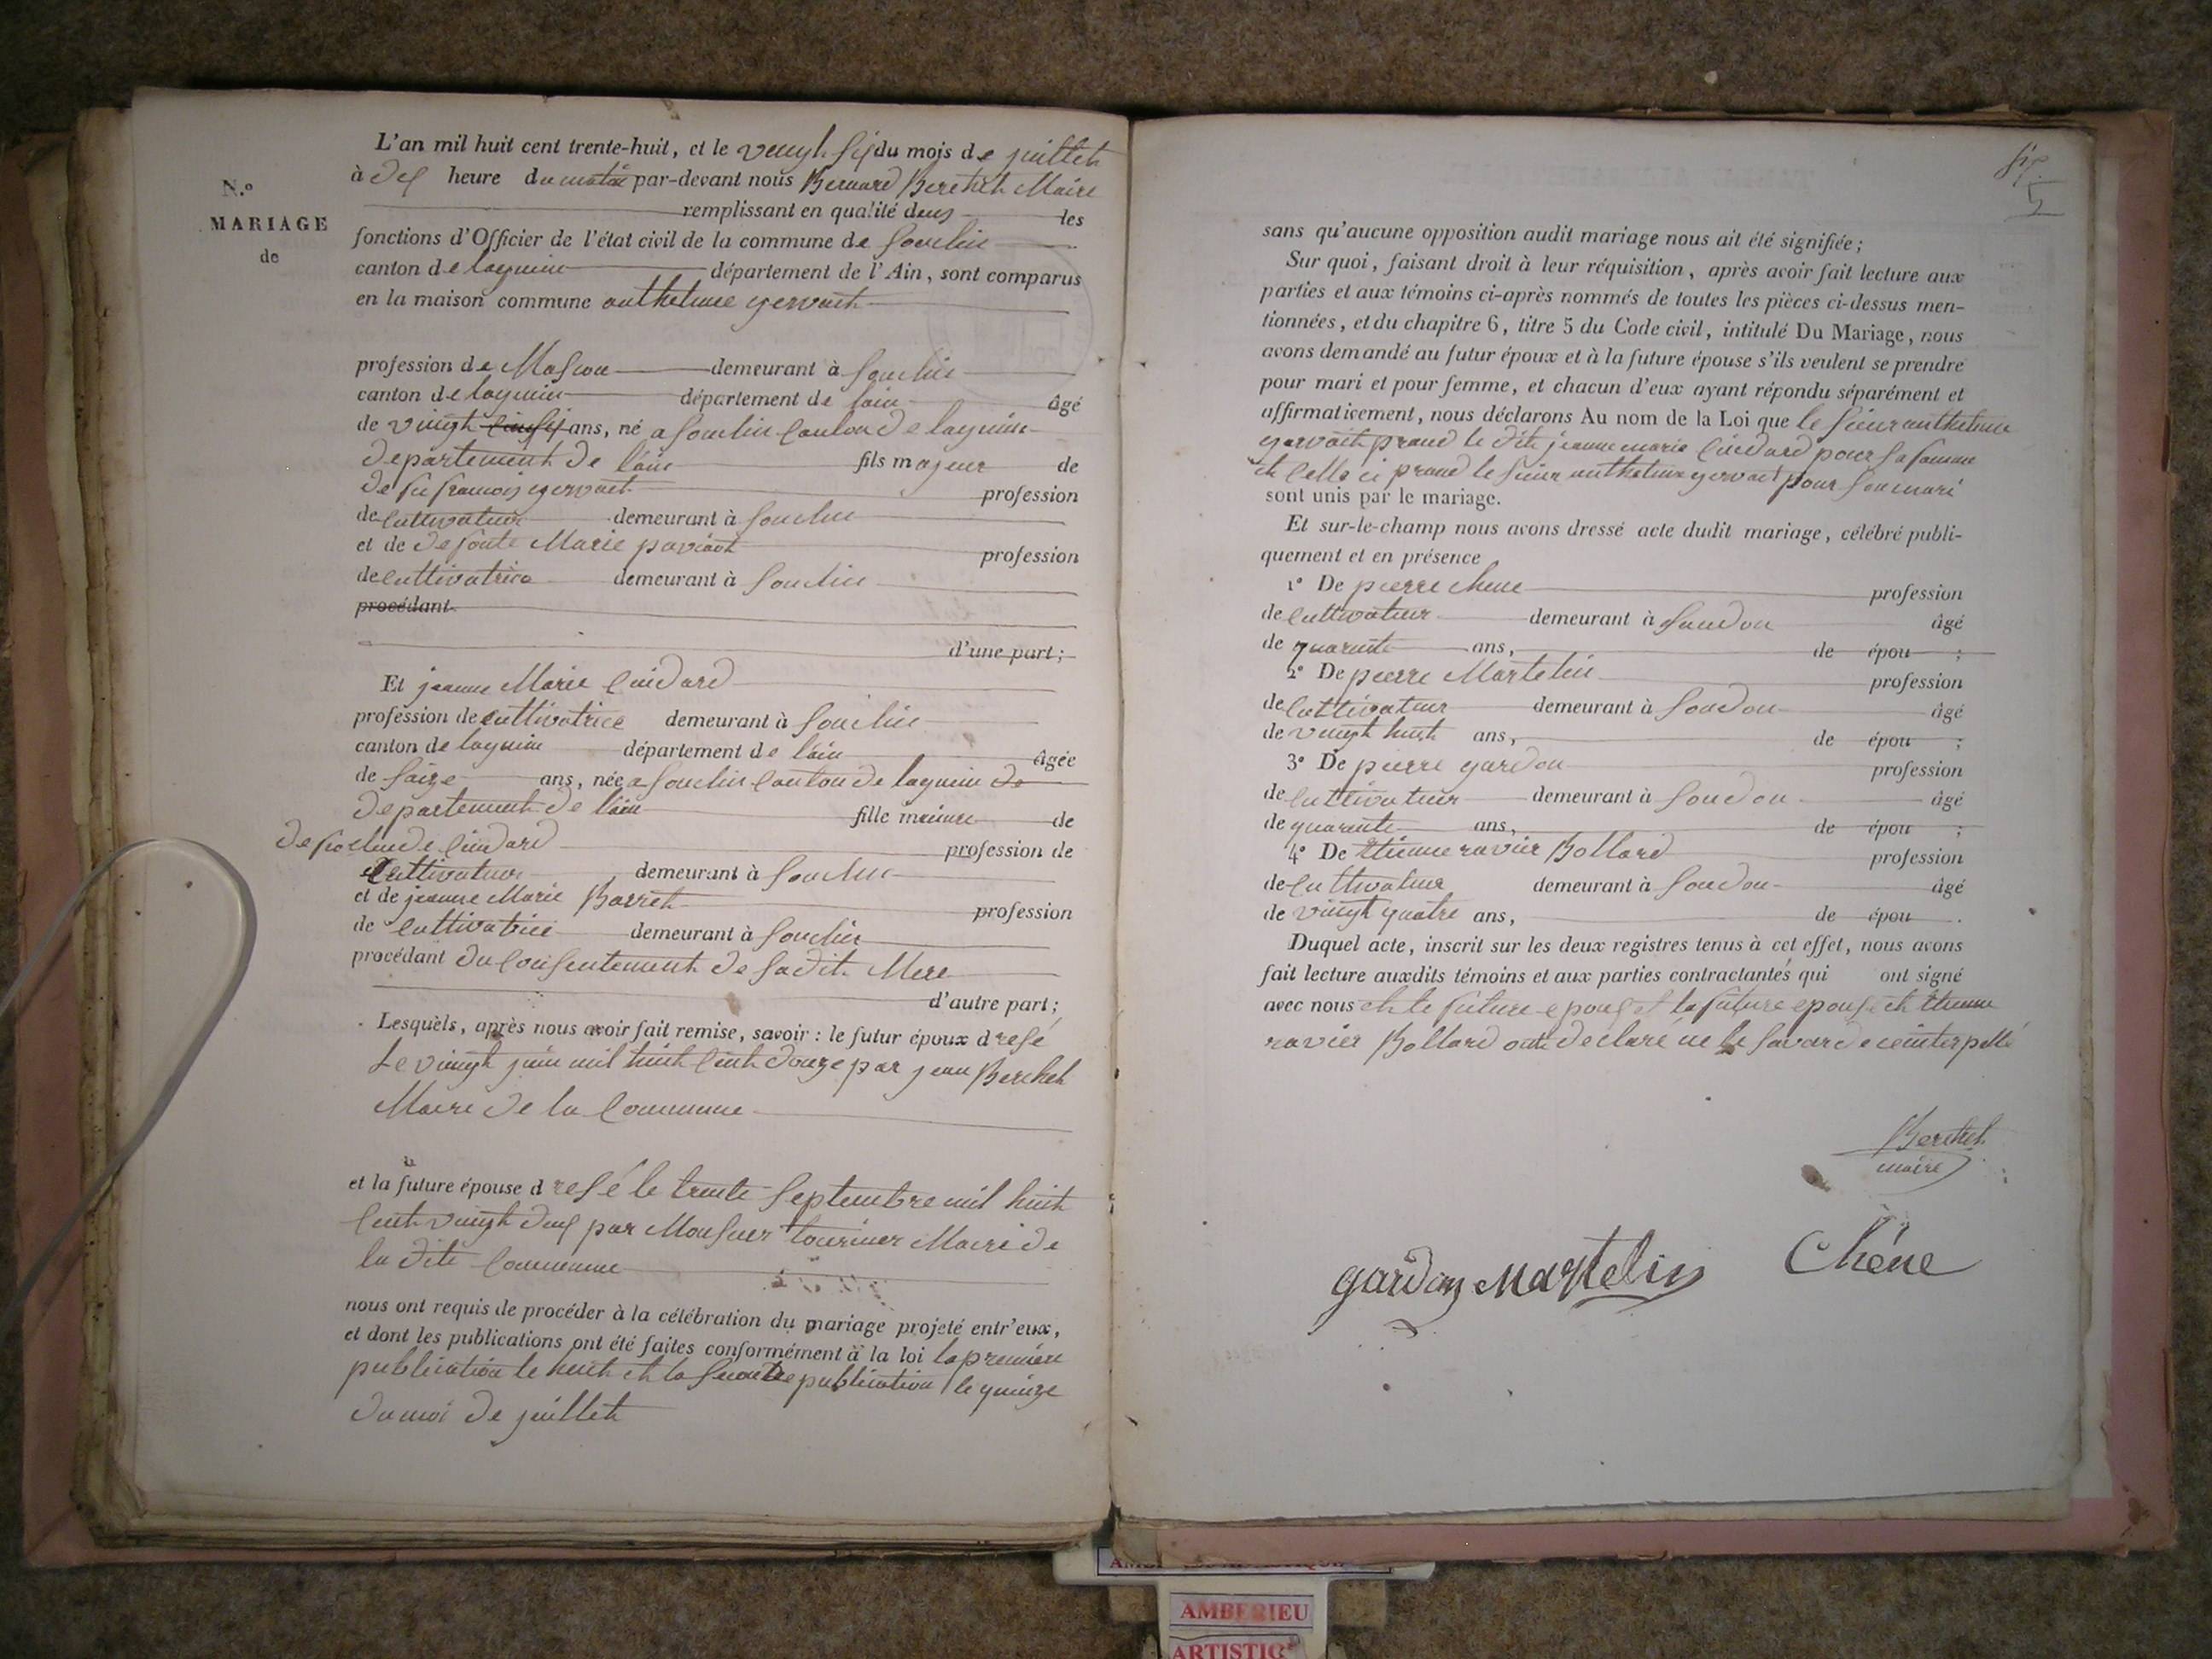 L'an mil huit cent trente-huit, et le vengh six du mois de juillet
à dex heure du matin par-devant nous Bernard Berthet Maire
remplissant en qualité deus les
fonctions d'Officier de l'état civil de la commune de Souclin
canton de lagnieu département de l'Ain, sont comparus
en la maison commune anthelme gervait
N.º
MARIAGE
de
profession de Masson demeurant à Souclin
canton de lagnieu département de lain âgé
de vingt six ans, né a Souclin canton de lagnieu
département de lain fils majeur de
de fu francois gervait profession
de cultivateur demeurant à Souclin
et de défunte Marie paviot profession
de cultivatrice demeurant à Souclin
procédant
d'une part;
Et jeanne Marie Cuidard
profession de cultivatrice demeurant à Souclin
canton de lagnieu département de lain âgée
de saize ans, née a Souclin canton de lagnieu de
département de lain fille mineure de
de fu claude Cuidard profession de
Cultivateur demeurant à Souclin
et de jeanne Marie Barret profession
de Cultivatrice demeurant à Souclin
procédant du consentement de sadit Mere
d'autre part;
Lesquels, après nous avoir fait remise, savoir : le futur époux d resé
le vingt juin mil huit cent douze par jean Berthet
Maire de la Commune
et la future épouse d resé le trente septembre mil huit
cent vingt deux par Monsieur tournier Maire de
la dite Commune
nous ont requis de procéder à la célébration du mariage projeté entr'eux,
et dont les publications ont été faites conformément à la loi la premiere
publication le huit et la seconde publication le quinze
du moi de juillet
5
sans qu'aucune opposition audit mariage nous ait été signifiée;
Sur quoi, faisant droit à leur réquisition, après avoir fait lecture aux
parties et aux témoins ci-après nommés de toutes les pièces ci-dessus men-
tionnées, et du chapitre 6, titre 5 du Code civil, intitulé Du Mariage, nous
avons demandé au futur époux et à la future épouse s'ils veulent se prendre
pour mari et pour femme, et chacun d'eux ayant répondu séparément et
affirmativement, nous déclarons Au nom de la Loi que le sieur anthelme
gervait prand le dite jeanne marie Cuidard pour sa famme
et Celle ci prand le sieur anthelme gervait pour son mari
sont unis par le mariage.
Et sur-le-champ nous avons dressé acte dudit mariage, célébré publi-
quement et en présence
1º De pierre chene profession
de cultivateur demeurant à Soudon âgé
de quarente ans, de épou ;
2º De pierre Martelin profession
de cultivateur demeurant à Soudon âgé
de vingt huit ans, de épou ;
3º De pierre gardon profession
de cultivateur demeurant à Soudon âgé
de quarente ans, de épou ;
4º De Etienne ravier Bollard profession
de cultivateur demeurant à Soudon âgé
de vingt quatre ans, de épou .
Duquel acte, inscrit sur les deux registres tenus à cet effet, nous avons
fait lecture auxdits témoins et aux parties contractantes qui ont signé
avec nous et le future epoux et la future epouse et Etienne
ravier Bollard ont déclaré ne le savoir de ce interpellé
Berthet
maire
gardon Martelin Chéne
AMBERIEU
ARTISTIQ